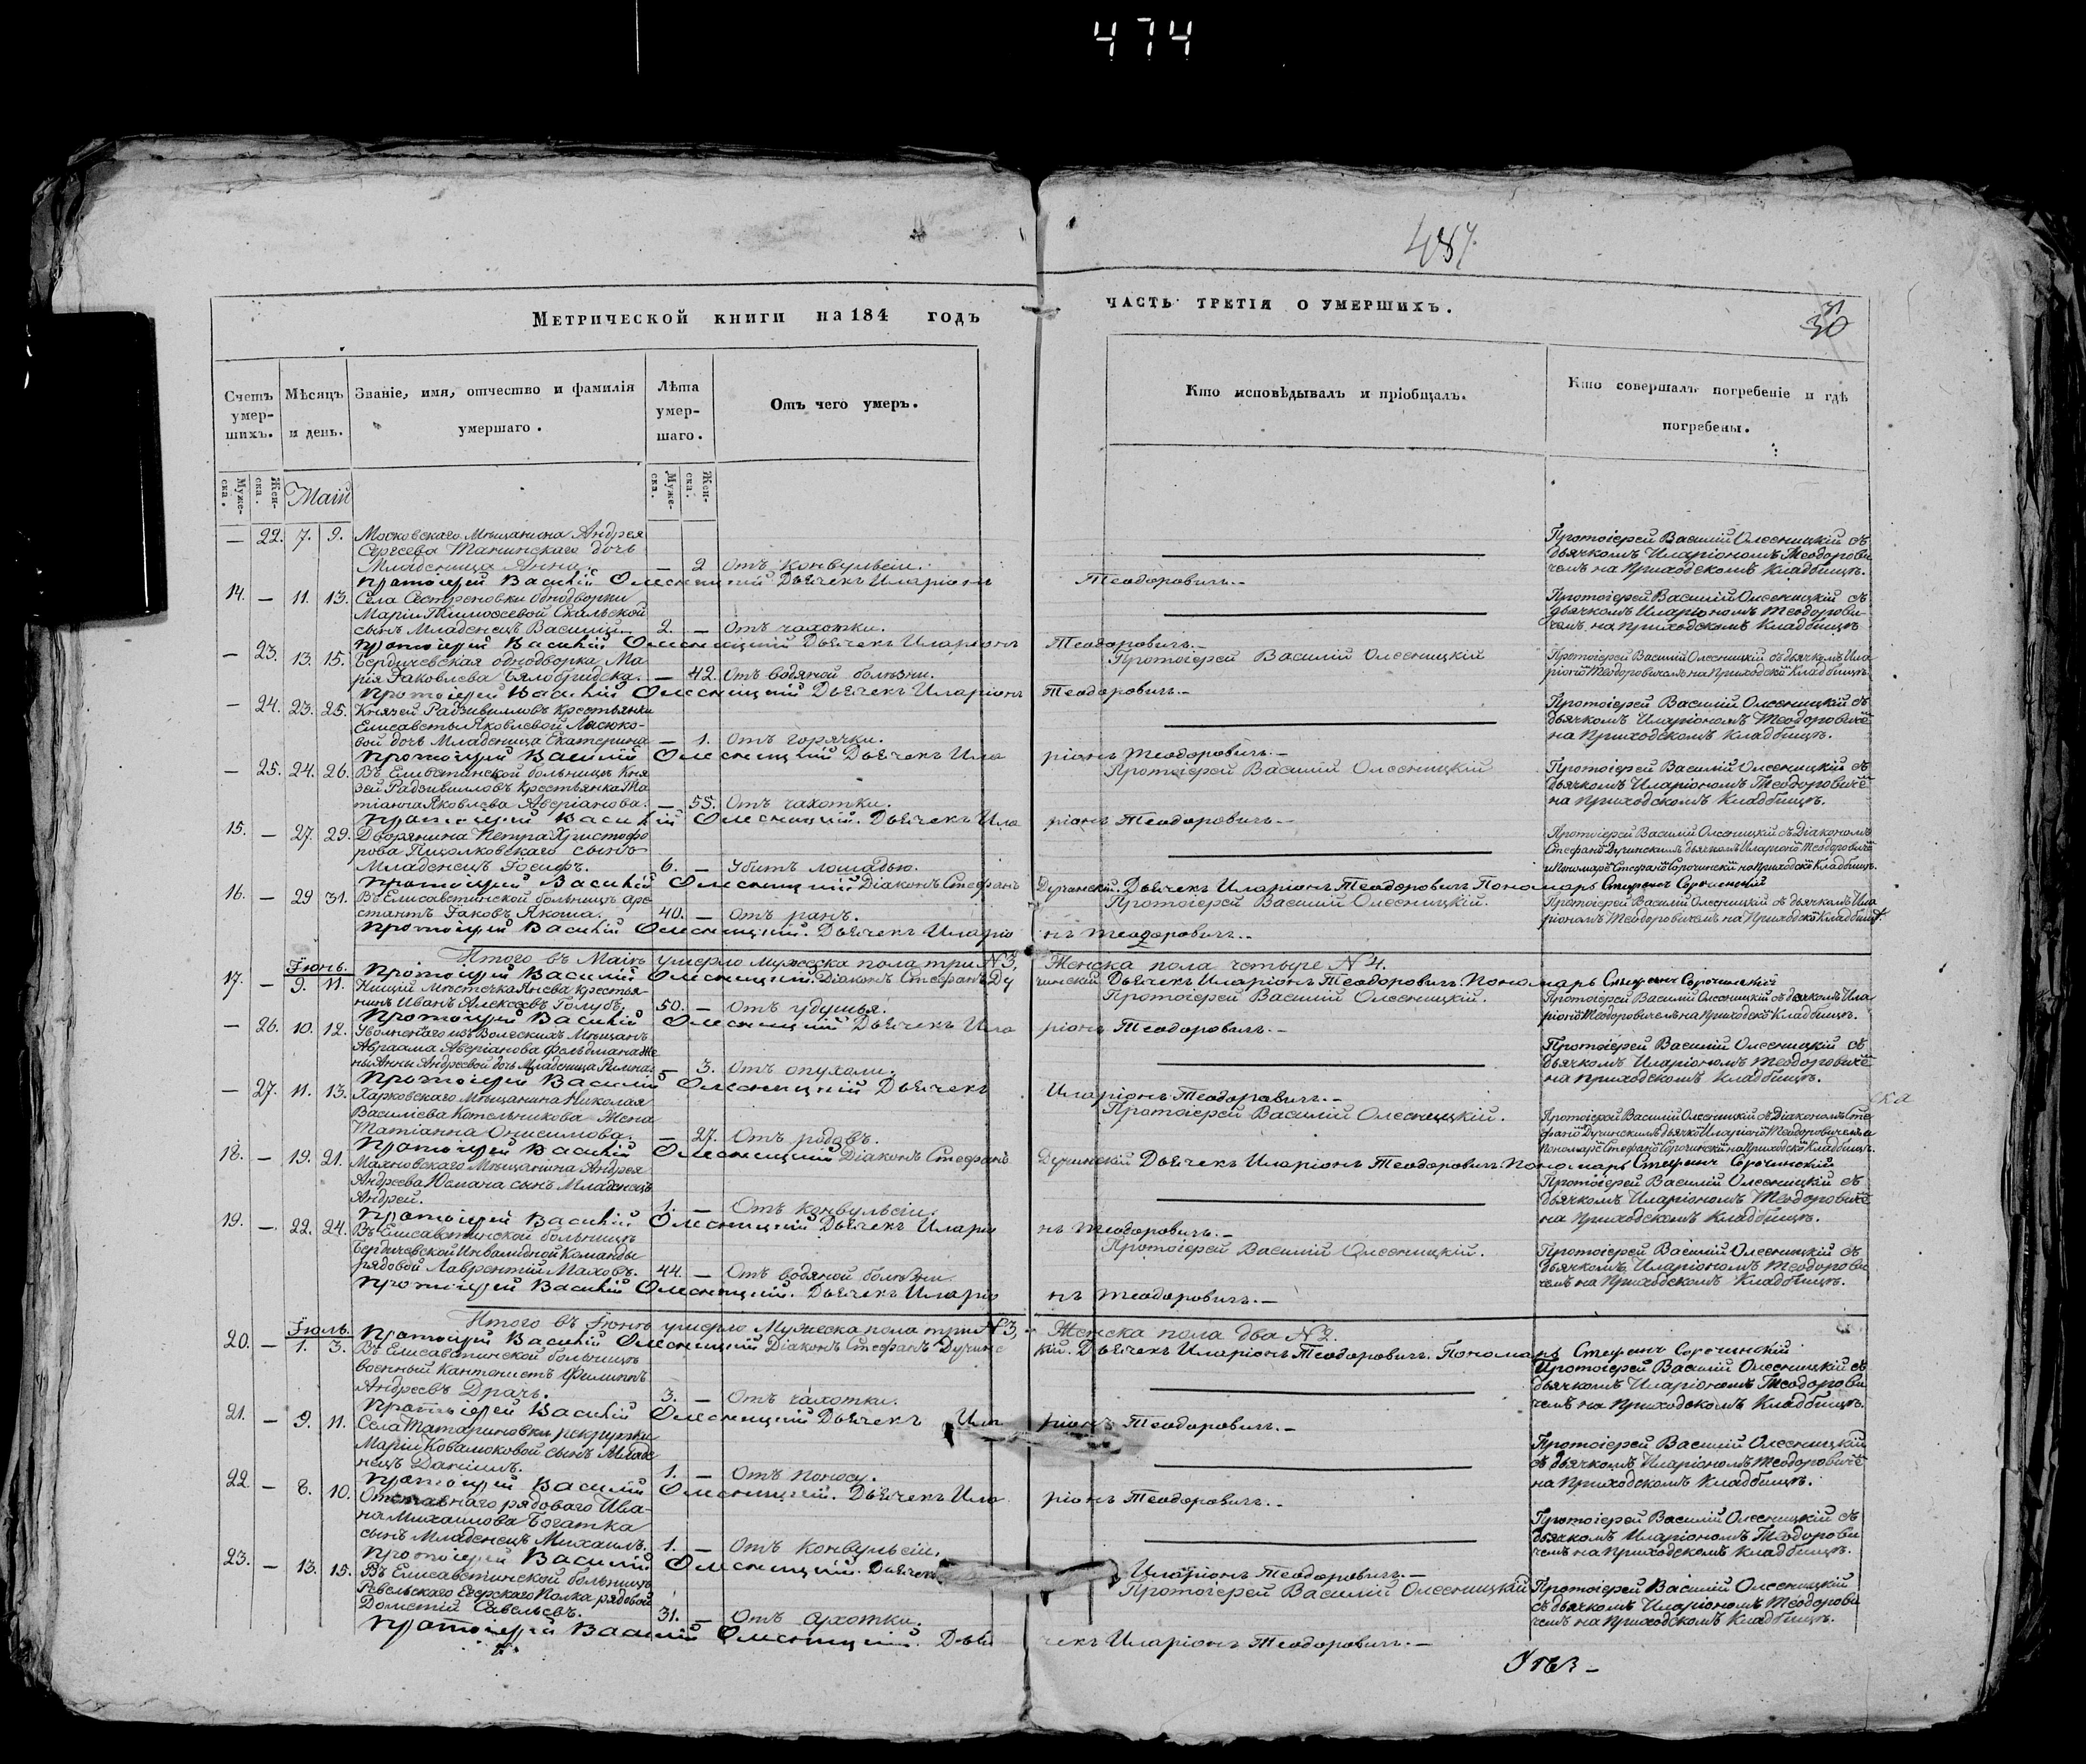 474
487.
МЕТРИЧЕСКОЙ КНИГИ на 184 ГОДЪ
ЧАСТЬ ТРЕТІЯ О УМЕРШИХЪ.
30
Счетъ умер-шихъ.
Мѣсяцъ и день.
Званіе, имя, отчество и фамилія умершаго.
Лѣта умер-шаго.
Отъ чего умеръ.
Кто исповѣдывалъ и пріобщалъ.
Кто совершалъ погребеніе и гдѣ погребены.
Муже-ска.
Жен-ска.
Маій
Муже-ска.
Жен-ска.
— 22. 7. 9. Московскаго Мѣщанина Андрея
Сергѣева Танинскаго дочь
Младеница Анна. — 2 Отъ конвульсіи.
Протоіерей Василій Олесницкій съ
дьячкомъ Иларіономъ Теодорови
чемъ на Приходскомъ Кладбищѣ.
Протоіерей Василій Олесницкій Дьячекъ Иларіонъ Теодоровичъ.—
14. — 11. 13. Села Сестреновки однодворки
Маріи Тимоѳеевой Скальской
сынъ Младенецъ Василій 2. — Отъ чахотки.
Протоіерей Василій Олесницкій съ
дьячкомъ Иларіономъ Теодорови
чемъ на Приходскомъ Кладбищѣ
Протоіерей Василій Олесницкій Дьячекъ Иларіонъ Теодоровичъ.—
— 23. 13. 15. Бердичевская однодворка Ма
рія Яковлева Бялобридска. — 42. Отъ водяной болѣзни.
Протоіерей Василій Олесницкій
Протоіерей Василій Олесницкій съ дьячкомъ Ила
ріоно Теодоровичемъ на Приходско Кладбищѣ.
Протоіерей Василій Олесницкій Дьячекъ Иларіонъ Теодоровичъ.—
— 24. 23. 25. Князей Радзивилловъ крестьянки
Елисаветы Яковлевой Лысюко-
вой дочь Младеница Екатерина — 1. Отъ горячки.
Протоіерей Василій Олесницкій съ
дьячкомъ Иларіономъ Теодоровиче
на Приходскомъ Кладбищѣ.
Протоіерей Василій Олесницкій Дьячекъ Иларіонъ Теодоровичъ.—
— 25. 24. 26. Въ Елисаветинской больницѣ Кня
зей Радзивилловъ крестьянка Та
тіанна Яковлева Аверіанова. — 55. Отъ чахотки.
Протоіерей Василій Олесницкій
Протоіерей Василій Олесницкій съ
дьячкомъ Иларіономъ Теодоровиче
на Приходскомъ Кладбищѣ.
Протоіерей Василій Олесницкій. Дьячекъ Иларіонъ Теодоровичъ.—
15. — 27. 29. Дворянина Петра Христофо
рова Пиолковскаго сынъ
Младенецъ Іосифъ. 6. — Убитъ лошадью.
Протоіерей Василій Олесницкій съ Діакономъ
Стефано Дучинскимъ дьячкомъ Иларіоно Теодоровиче
и Пономаре Стефано Сорочински на Приходско Кладбищѣ.
Протоіерей Василій Олесницкій Діаконъ Стефанъ Дучинскій. Дьячекъ Иларіонъ Теодоровичъ Пономарь Стефанъ Сорочинскій
16. — 29 31. Въ Елисаветинской больницѣ аре
стантъ Іаковъ Якоша. 40. — Отъ ранъ.
Протоіерей Василій Олесницкій.
Протоіерей Василій Олесницкій съ дьячкомъ Ила
ріономъ Теодоровичемъ на Приходско Кладбищѣ.
Протоіерей Василій Олесницкій. Дьячекъ Иларіонъ Теодоровичъ..
Итого въ Маіѣ умерло Мужеска пола три N 3, Женска пола четыре N 4.
Протоіерей Василій Олесницкій. Діаконъ Стефанъ Дучинскій Дьячекъ Иларіонъ Теодоровичъ. Пономарь Стефанъ Сорочинскій
Іюнь.
17. — 9. 11. Нищій Мѣстечка Янева крестья
нинъ Иванъ Алексѣевъ Голубъ, 50. — Отъ удушья.
Протоіерей Василій Олесницкій.
Протоіерей Василій Олесницкій съ дьячкомъ Ила
ріоно Теодоровичемъ на Приходско Кладбищѣ.
Протоіерей Василій Олесницкій Дьячекъ Иларіонъ Теодоровичъ.—
— 26. 10. 12. Уволеннаго изъ Волескихъ Мѣщанъ
Авраама Аверіанова Фельдмана же
ны Анны Андреевой дочь Младеница — 3. Отъ опухали.
Протоіерей Василій Олесницкій съ
дьячкомъ Иларіономъ Теодоровиче
на Приходскомъ Кладбищѣ.
Протоіерей Василій Олесницкій Дьячекъ Иларіонъ Теодоровичъ.—
— 27. 11. 13. Харковскаго Мѣщанина Николая
Василіева Котельникова Жена
Татіанна Онисимова. — 27. Отъ родовъ.
Протоіерей Василій Олесницкій.
Протоіерей Василій Олесницкій съ Діакономъ Сте
фано Дучинскимъ дьячко Иларіоно Теодоровичемъ и
Пономаре Стефано Сорочински на Приходско Кладбищѣ.
Протоіерей Василій Олесницкій Діаконъ Стефанъ Дучинскій Дьячекъ Иларіонъ Теодоровичъ. Пономарь Стефанъ Сорочинскій
18. — 19. 21. Махновскаго Мѣщанина Андрея
Андреева Юсмача сынъ Младенецъ
Андрей. 1. — Отъ конвульсіи.
Протоіерей Василій Олесницкій съ
дьячкомъ Иларіономъ Теодоровиче
на Приходскомъ Кладбищѣ.
Протоіерей Василій Олесницкій Дьячекъ Иларіонъ Теодоровичъ.—
19. — 22. 24. Въ Елисаветинской больницѣ
Бердичевской Инвалидной Команды
рядовой Лаврентій Маховъ. 44. — Отъ водяной болѣзни
Протоіерей Василій Олесницкій.
Протоіерей Василій Олесницкій съ
дьячкомъ Иларіономъ Теодорови
чемъ на Приходскомъ Кладбищѣ.
Протоіерей Василій Олесницкій. Дьячекъ Иларіонъ Теодоровичъ.—
Итого въ Іюнѣ умерло Мужеска пола три N 3, Женска пола два N 2.
Протоіерей Василій Олесницкій Діаконъ Стефанъ Дучинскій. Дьячекъ Иларіонъ Теодоровичъ. Пономарь Стефанъ Сорочинскій
Іюль.
20. — 1. 3. Въ Елисаветинской больницѣ
военный Кантонистъ Филиппъ
Андреевъ Драчъ. 3. — Отъ чахотки.
Протоіерей Василій Олесницкій съ
дьячкомъ Иларіономъ Теодорови
чемъ на Приходскомъ Кладбищѣ.
Протоіерей Василій Олесницкій Дьячекъ Иларіонъ Теодоровичъ.—
21. — 9. 11. Села Татариновки рекрутки
Маріи Ковалюковой сынъ Младе
нецъ Даніилъ. 1. — Отъ поносу.
Протоіерей Василій Олесницкій
съ дьячкомъ Иларіономъ Теодоровиче
на Приходскомъ Кладбищѣ.
Протоіерей Василій Олесницкій. Дьячекъ Иларіонъ Теодоровичъ.—
22 — 8. 10. Отставнаго рядоваго Ива-
на Михаилова Богатка
сынъ Младенецъ Михаилъ. 1. — Отъ конвульсіи.
Протоіерей Василій Олесницкій съ
дьячкомъ Иларіономъ Теодорови
чемъ на Приходскомъ Кладбищѣ.
Протоіерей Василій Олесницкій. Дьячекъ Иларіонъ Теодоровичъ.—
23. — 13. 15. Въ Елисаветинской больницѣ
Ревельскаго Егерскаго Полка рядовой
Дометій Савельевъ. 31. — Отъ сухотки.
Протоіерей Василій Олесницкій
Протоіерей Василій Олесницкій
съ дьячкомъ Иларіономъ Теодорови
чемъ на Приходскомъ Кладбищѣ.
Протоіерей Василій Олесницкій. Дьячекъ Иларіонъ Теодоровичъ.—